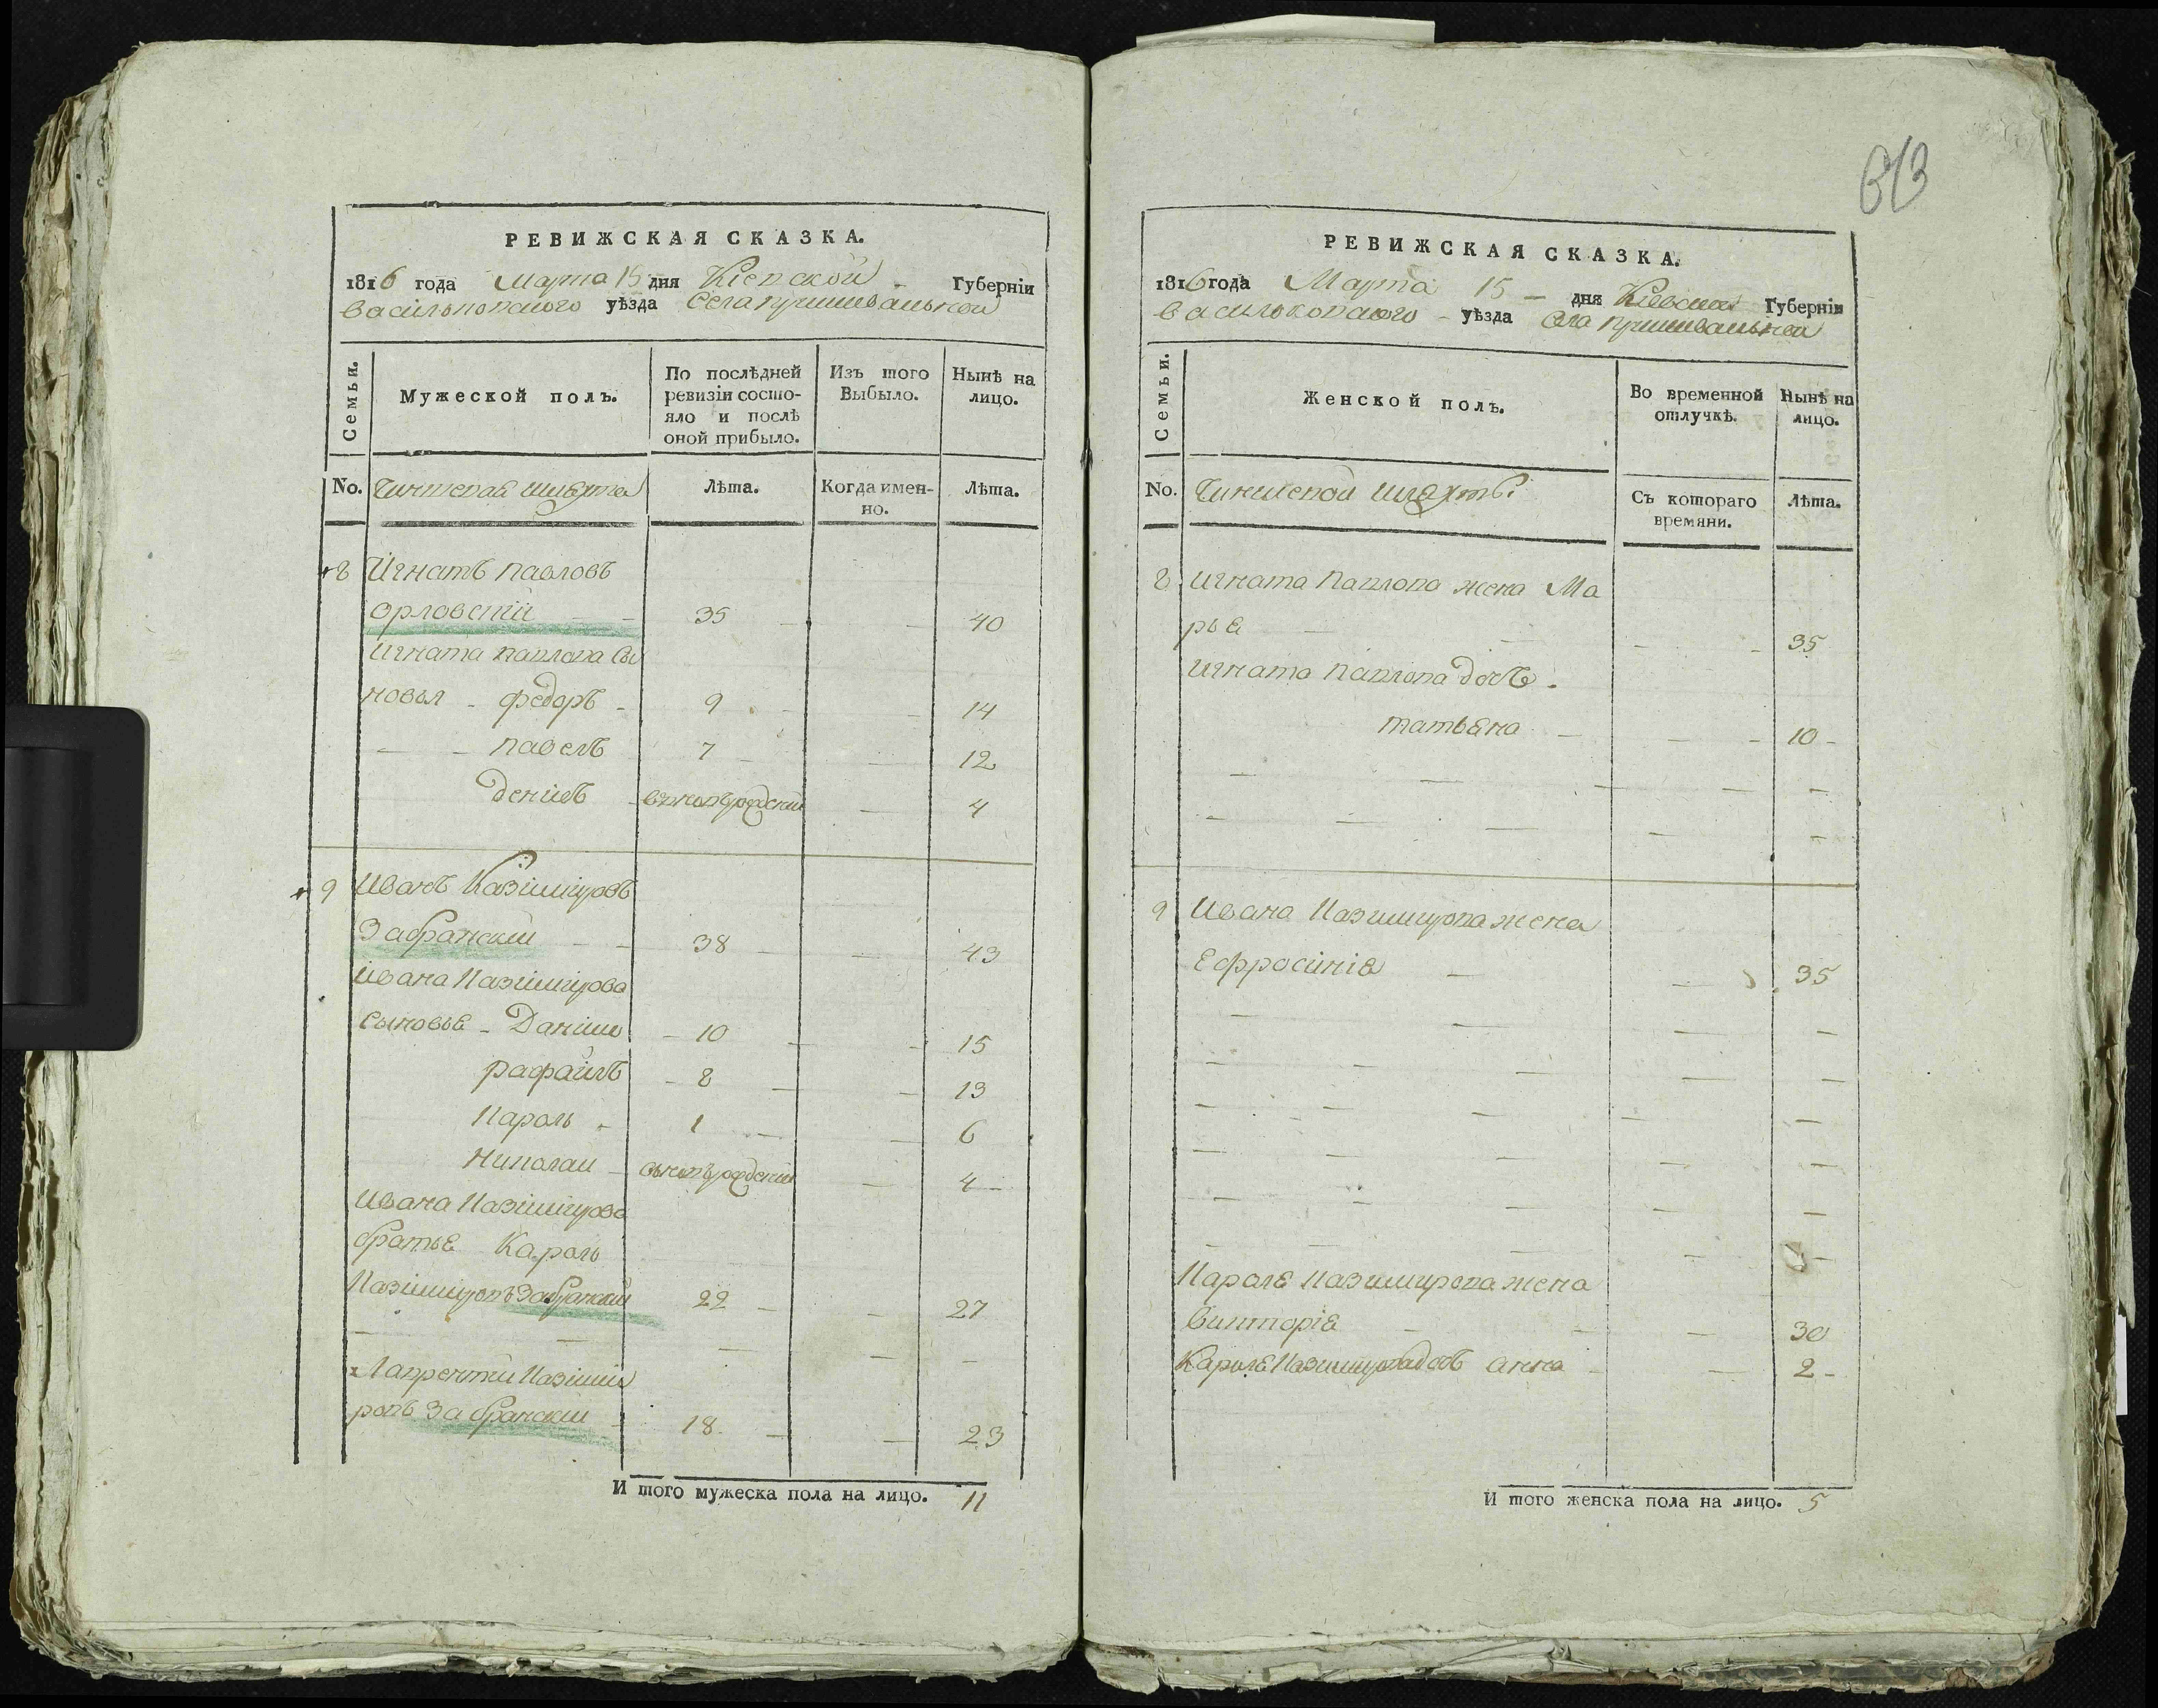 РЕВИЖСКАЯ СКАЗКА.
1816 года Марта 15 дня Кіевской Губерніи
Василковского уѣзда Села Пришивальной
Семьи.
Мужеской полъ.
По послѣдней ревизіи состо-
яло и послѣ оной прибыло.
Изъ того Выбыло.
Нынѣ на лицо.
No. Чиншевая шляхта
Лѣта.
Когда имен-
но.
Лѣта.
8 Игнатъ Павловъ
Орловскій 35 40
Игната Павлова сы
новья Федоръ 9 14
Павелъ 7 12
Денисъ 4
9 Иванъ Казиміровъ
Забранскій 38 43
Ивана Казимірова
сыновья Данило 10 15
Рафаилъ 8 13
Кароль 1 6
Николай 4
Ивана Казимірова
братья Кароль
Казиміровъ Забранскій 22 27
Лаврентий Казимі
ровъ Забранскій 18 23
И того мужеска пола на лицо. 11
613
РЕВИЖСКАЯ СКАЗКА.
1816 года Марта 15 дня Киевской Губерніи
Василковского уѣзда Села Пришивальной
Семьи.
Женской полъ.
Во временной отлучкѣ.
Нынѣ на лицо.
No. Чиншевой шляхты
Съ котораго времяни.
Лѣта.
8 Игната Павлова жена Ма
рья 35
Игната Павлова дочь
Татьяна 10
9 Ивана Казимирова жена
Ефросинія 35
Кароля Казимирова жена
Викторія 30
Кароля Казимирова дочь Анна 2
И того женска пола на лицо. 5